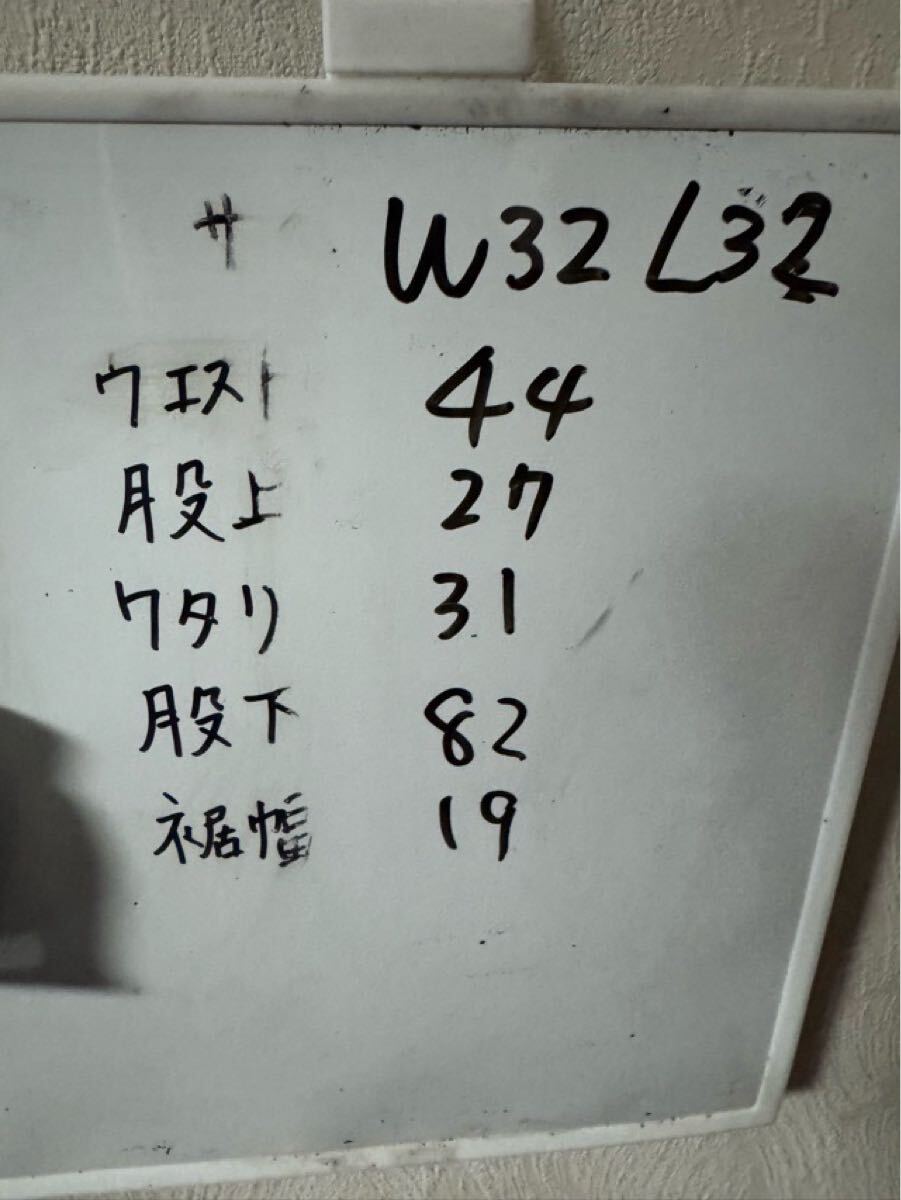 サ W32 L32
ウエスト 44
股上 27
ワタリ 31
股下 82
裾幅 19